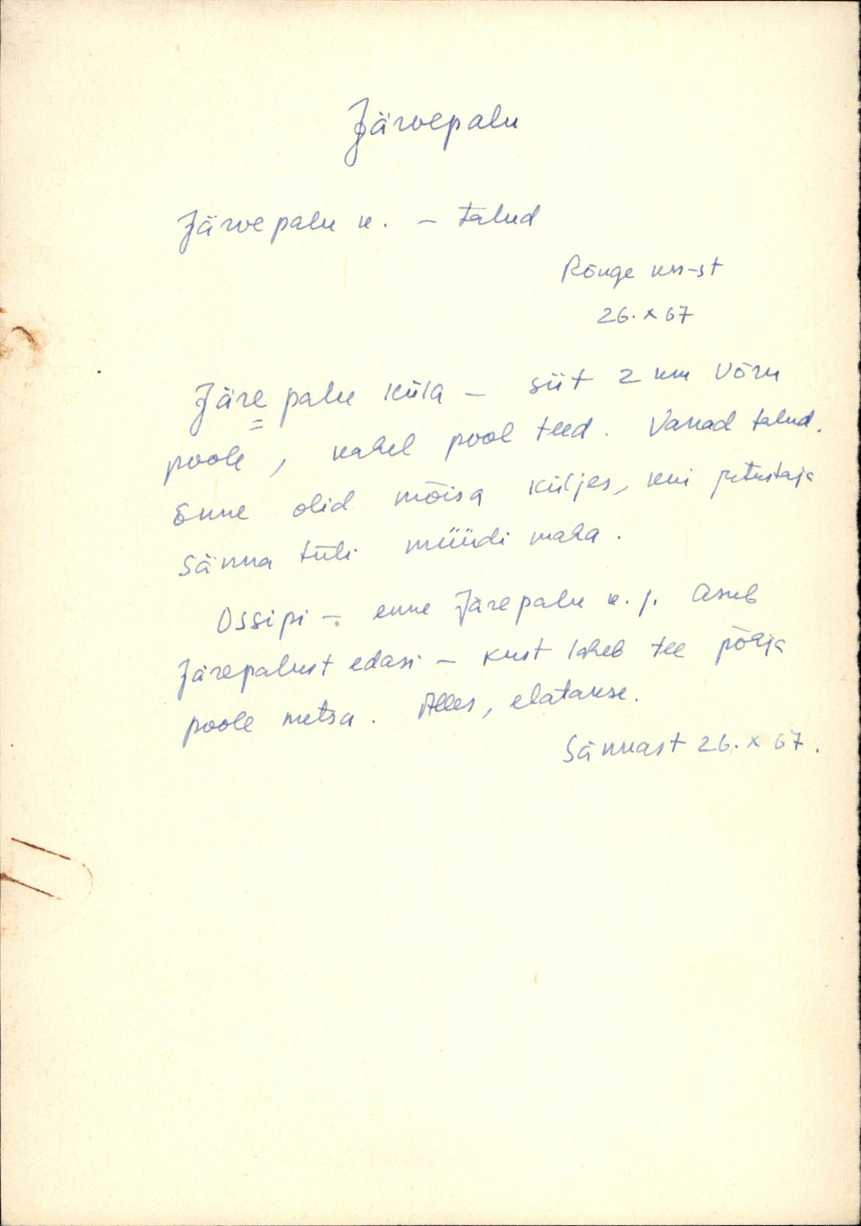 Järvepalu
Järvepalu k. – talud
Rõuge kn-st
26. X 67
Järepalu küla – siit 2 km Võru
poole, kahel pool teed. Vanad talud.
Enne olid mõisa küljes, kui
Sänna tüli müüdi maha.
Ossipi – enne Järepalu k. j. Asub
Järepalust edasi – kust läheb tee põhja
poole metsa. Alles, elatakse.
Sännast 26. X 67.